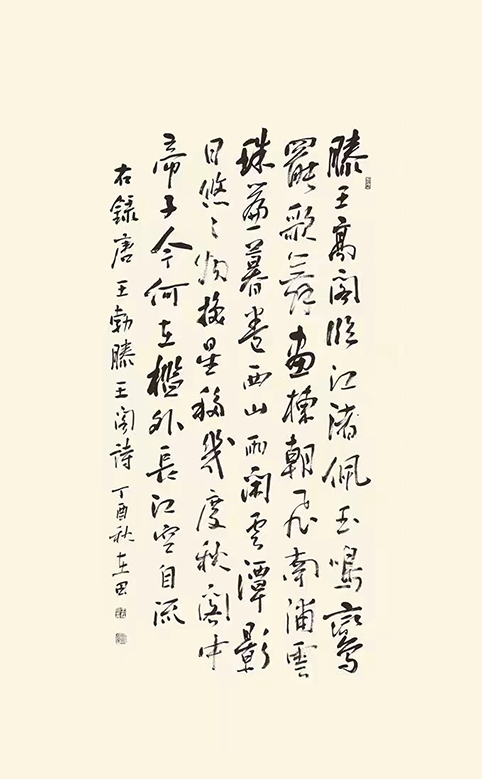 滕王高閣臨江渚佩玉鳴鸞
罷歌舞畫棟朝飛南浦雲
珠簾暮卷西山雨閑云潭影
日悠々物換星移幾度秋閣中
帝子今何在檻外長江空自流
右錄唐王勃滕王閣詩 丁酉秋